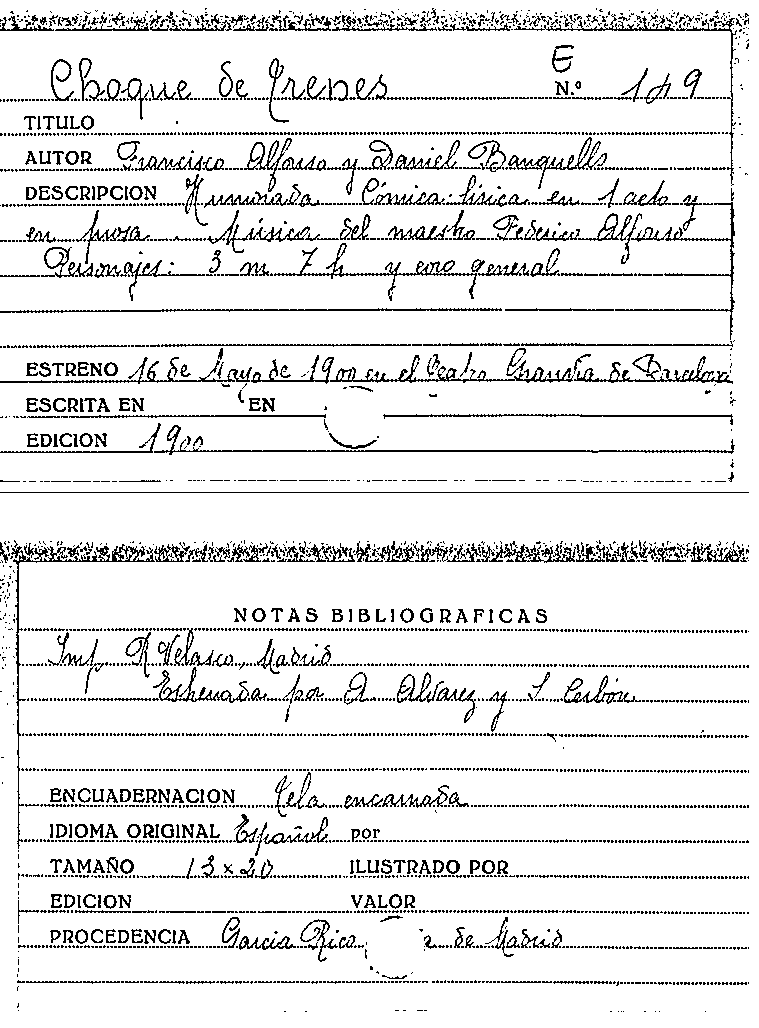 E
Choque de Trenes N.º 149
TITULO
AUTOR Francisco Alfonso y Daniel Banquells
DESCRIPCION Humorada Cómica-lírica en 1 acto y
en prosa. Música del maestro Federico Alfonso
Personajes: 3 m 7 h y coro general
ESTRENO 16 de Mayo de 1900 en el Teatro Granvía de Barcelona
ESCRITA EN EN
EDICION 1900
NOTAS BIBLIOGRAFICAS
Imp. R Velasco, Madrid
Estrenada por A. Alvarez y S Cerbón
ENCUADERNACION Tela encarnada
IDIOMA ORIGINAL Español por
TAMAÑO 13 x 20 ILUSTRADO POR
EDICION VALOR
PROCEDENCIA Garcia Rico de Madrid